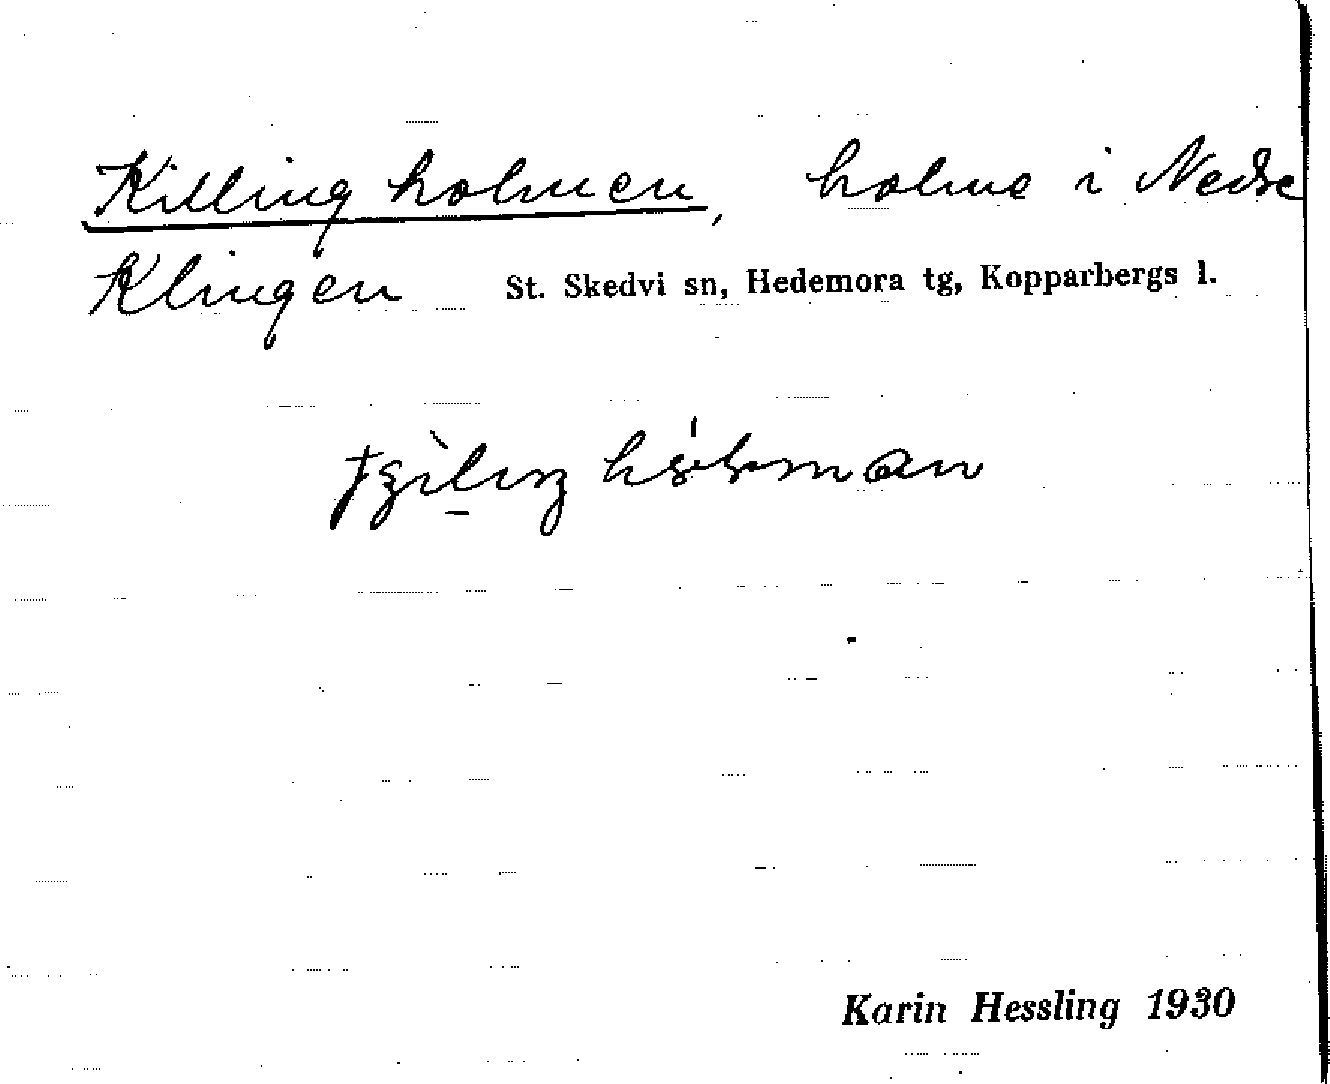 Killingholmen, holme i Nedre
Klingen St. Skedvi sn, Hedemora tg, Kopparbergs l.
Karin Hessling 1930